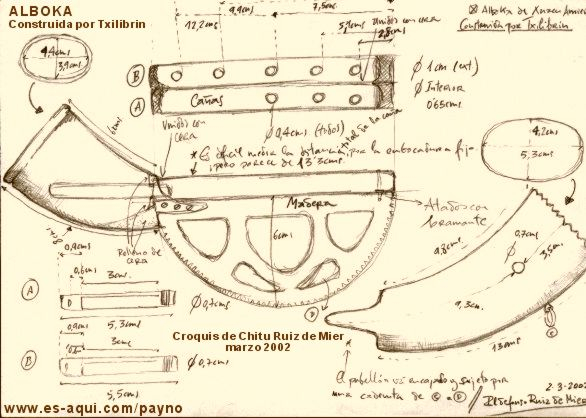 ALBOKA
Construida por Txilibrin
9,9cms
7,5cms
⊗ Alboka de
Construida por Txilibrin
12,2cms
5,1cms
Unidos con cera
2,8cms
4,4cms
3,9cms
B
A
Cañas
Ø 1cm (ext)
Ø Interior
0'65cms
Unidos con
cera
Ø0,4cms (todos)
total de la caña
* Es difícil medir la distancia por la embocadura fija
pero parece de 13'3cms.
4,2cms
5,3cms
Madera
6cms
Atados con
bramante
Relleno de
cera
9,8cms
0,7cms
3,5cms
0,9cms
0,6cms
3cms
A
Ø0,7cms
5,3cms
0,9cms
3cms
B
Ø0,7cms
5,5cms
D
9,3cms
13cms
C
Croquis de Chitu Ruiz de Mier
marzo 2002
El pabellón va encajado y sujeto por
una cadenita de C a D
2-3-2002
Ildefonso Ruiz de Mier
www.es-aqui.com/payno